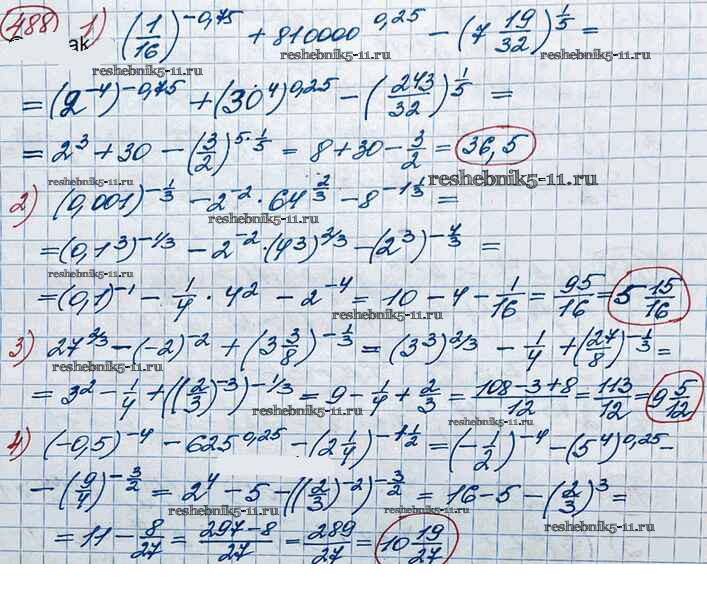 488 1) (1/16)^-0,75 + 810000^0,25 - (7 19/32)^1/5 =
ak
reshebnik5-11.ru reshebnik5-11.ru
= (2^-4)^-0,75 + (30^4)^0,25 - (243/32)^1/5 =
reshebnik5-11.ru
= 2^3 + 30 - (3/2)^5·1/5 = 8 + 30 - 3/2 = 36,5
reshebnik5-11.ru reshebnik5-11.ru
2) (0,001)^-1/3 - 2^-2 · 64^2/3 - 8^-1 1/3 =
reshebnik5-11.ru
= (0,1^3)^-1/3 - 2^-2 · (4^3)^2/3 - (2^3)^-4/3 =
reshebnik5-11.ru
= (0,1)^-1 - 1/4 · 4^2 - 2^-4 = 10 - 4 - 1/16 = 95/16 = 5 15/16
reshebnik5-11.ru reshebnik5-11.ru
3) 27^2/3 - (-2)^-2 + (3 3/8)^-1/3 = (3^3)^2/3 - 1/4 + (27/8)^-1/3 =
reshebnik5-11.ru
= 3^2 - 1/4 + ((2/3)^-3)^-1/3 = 9 - 1/4 + 2/3 = 108-3+8/12 = 113/12 = 9 5/12
reshebnik5-11.ru reshebnik5-11.ru
4) (-0,5)^-4 - 625^0,25 - (2 1/4)^-1 1/2 = (-1/2)^-4 - (5^4)^0,25 -
reshebnik5-11.ru
- (9/4)^-3/2 = 2^4 - 5 - ((2/3)^-2)^-3/2 = 16 - 5 - (2/3)^3 =
reshebnik5-11.ru reshebnik5-11.ru
= 11 - 8/27 = 297-8/27 = 289/27 = 10 19/27
reshebnik5-11.ru